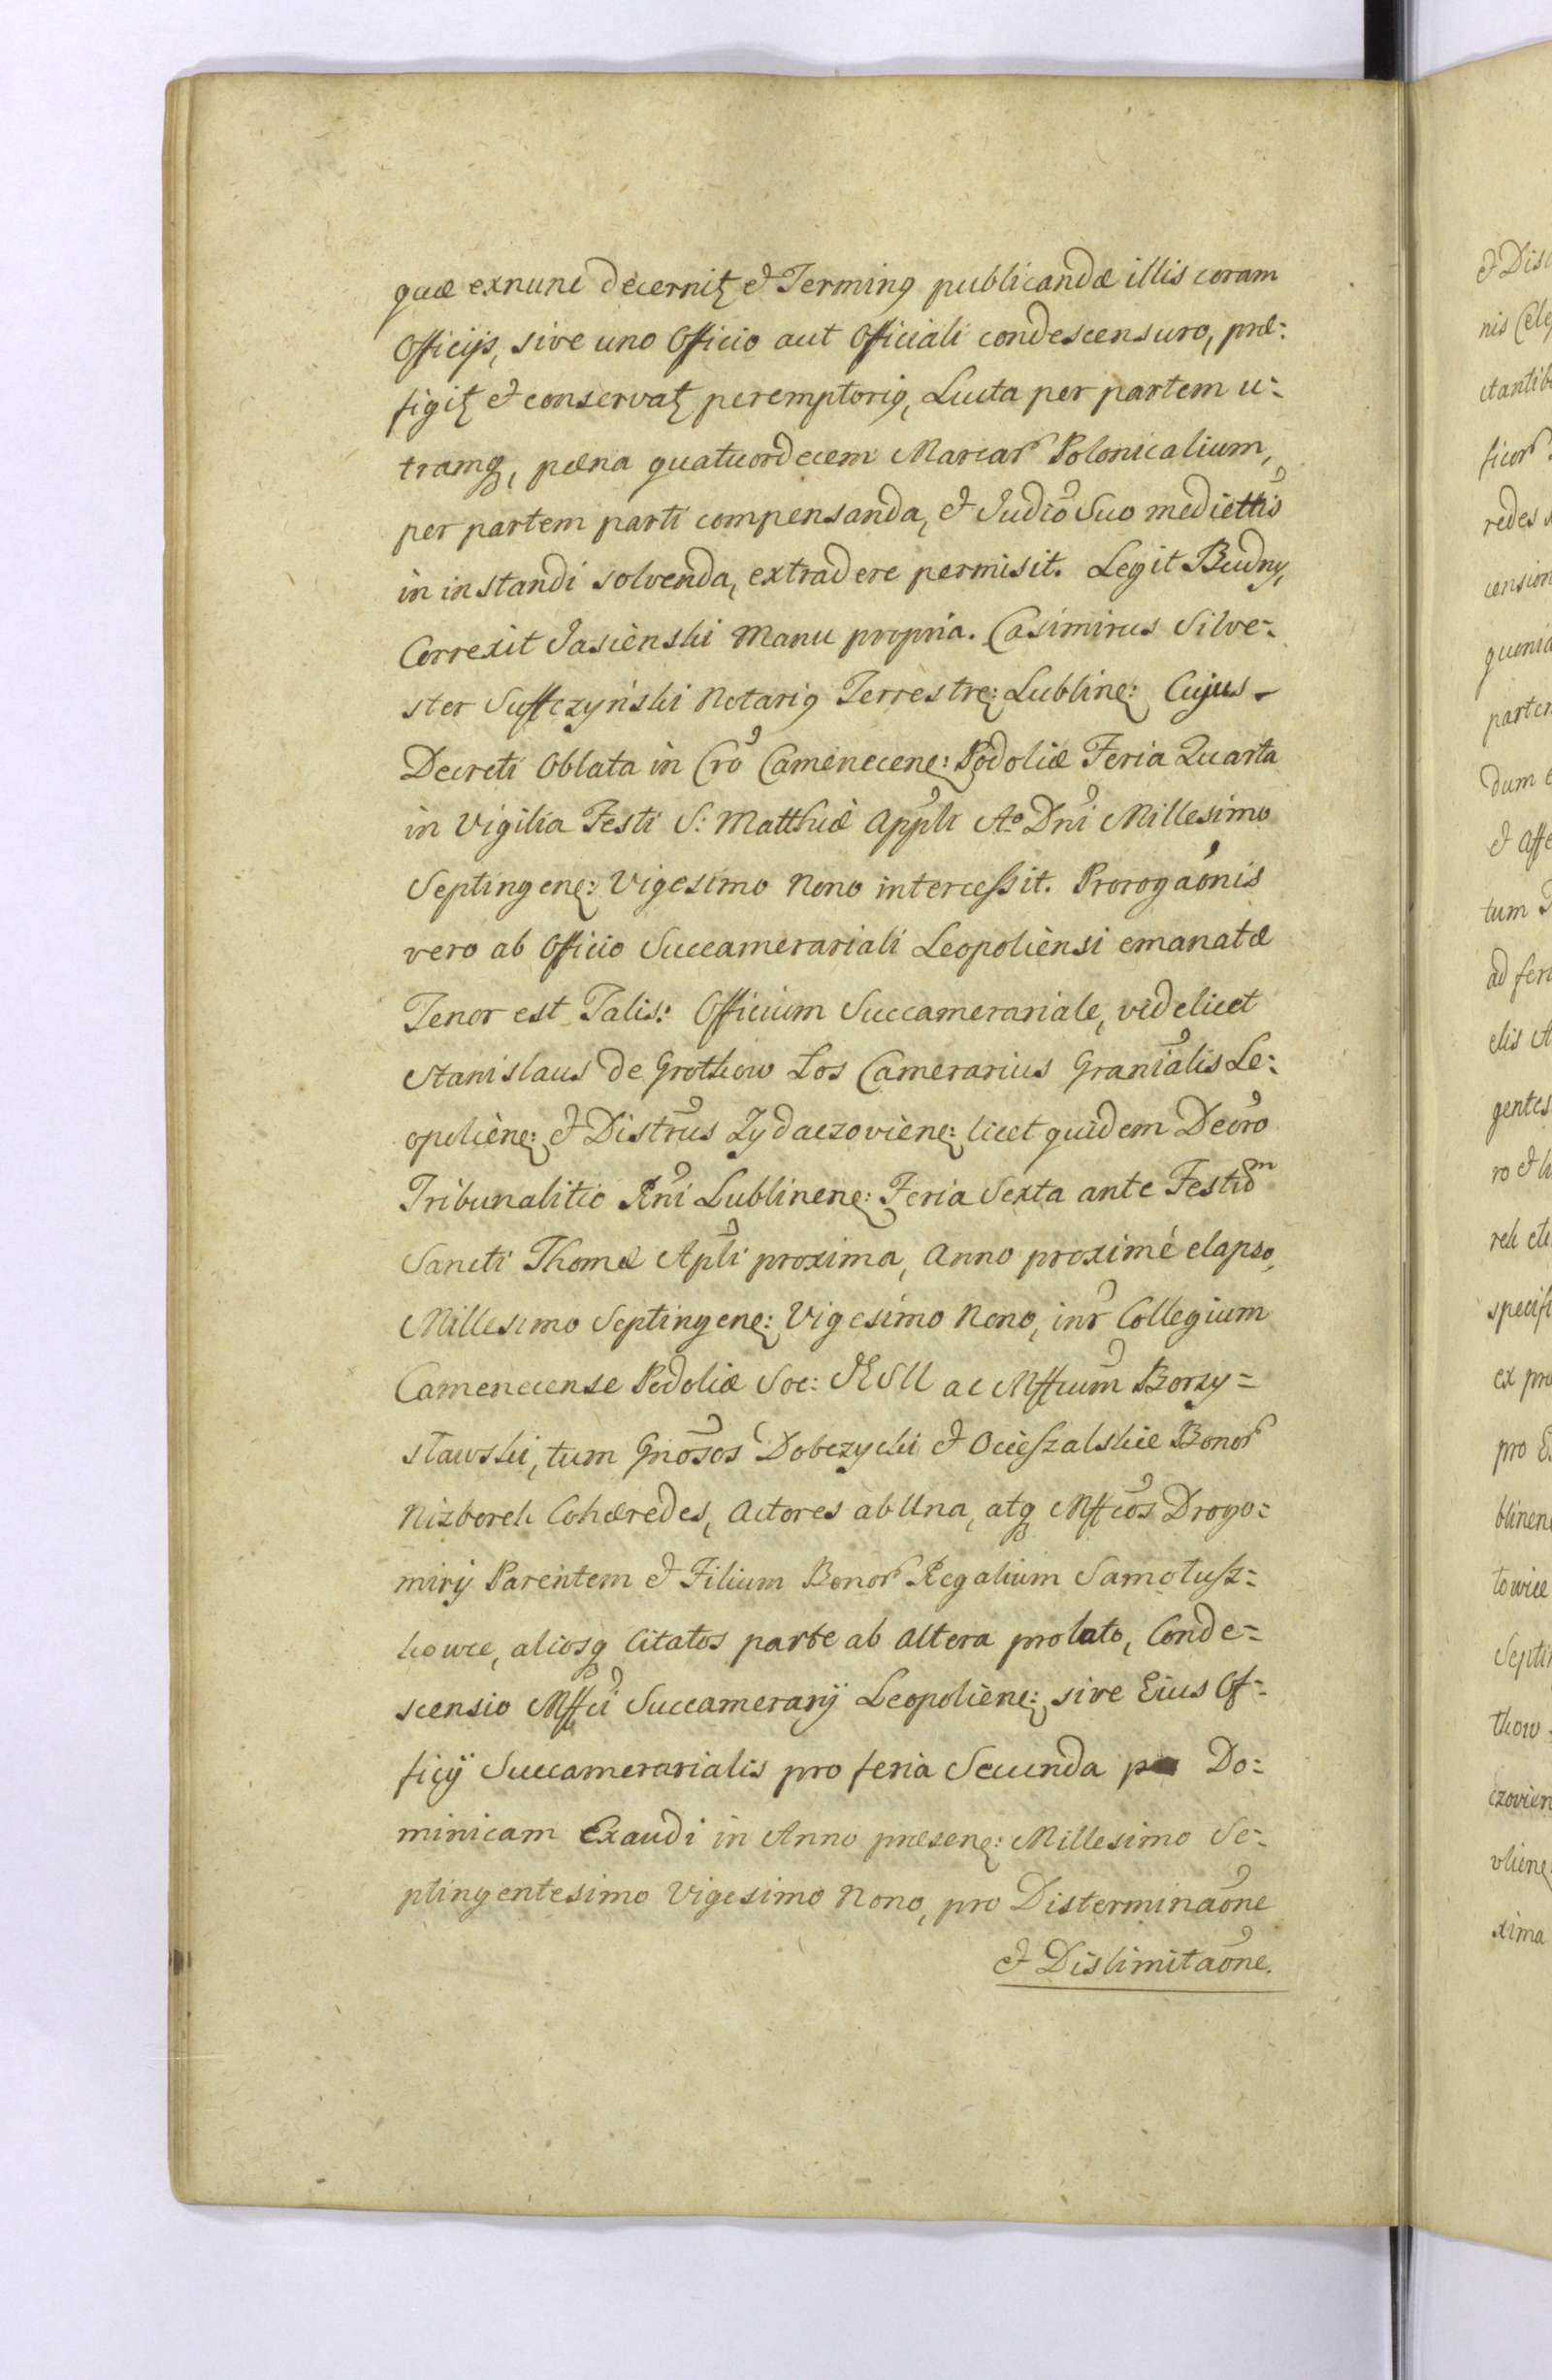 quæ exnunc decernitꝫ et Terminꝯ publicandæ illis coram
Officijs, sive uno Officio aut Officiali condescensuro, præ:
figitꝫ et conservatꝫ peremptoriꝯ, Lucta per partem u:
tramqꝫ, pæna quatuordecem Marcar Polonicalium,
per partem parti compensanda, et Judio Suo medietis
in instandi solvenda, extradere permisit. Legit Budny,
Correxit Jasienski Manu propria. Casimirus Silve:
ster Suffczyński Notariꝯ Terrestre: Lubline: Cujus
Decreti Oblata in Cro Camenecene: Podoliæ Feria Quarta
in Vigilia Festi S: Matthiæ Appli Ao Dni Millesimo
Septingene: Vigesimo Nono intercessit. Prorogaonis
vero ab Officio Succamerariali Leopoliensi emanatæ
Tenor est Talis: Officium Succamerariale, videlicet
Stanislaus de Grothow Łos Camerarius Granialis Le:
opoliene: et Distrus Zydaczoviene: licet quidem Decro
Tribunalitio Rni Lublinene: Feria Sexta ante Festum
Sancti Thomæ Apli proxima, Anno proximé elapso,
Millesimo Septingene: Vigesimo Nono, inr Collegium
Camenecense Podoliæ Soc: JESU ac Mffcum Borzy=
sławski, tum Gnosos Dobczychi et Ocieszalskie Bonor
Nizboreh Cohæredes, Actores ab Una, atqꝫ Mffcos Drogo=
mirÿ Parentem et Filium Bonor Regalium Samołusz=
kowce, aliosqꝫ Citatos parte ab altera prolato, Conde=
scensio Mffci Succamerarÿ Leopoliene: sive Eius Of=
ficÿ Succamerarialis pro feria Secunda Do:
minicam Exaudi in Anno præsene: Millesimo Se:
ptingentesimo Vigesimo Nono, pro Disterminaone
et Dislimitaone.